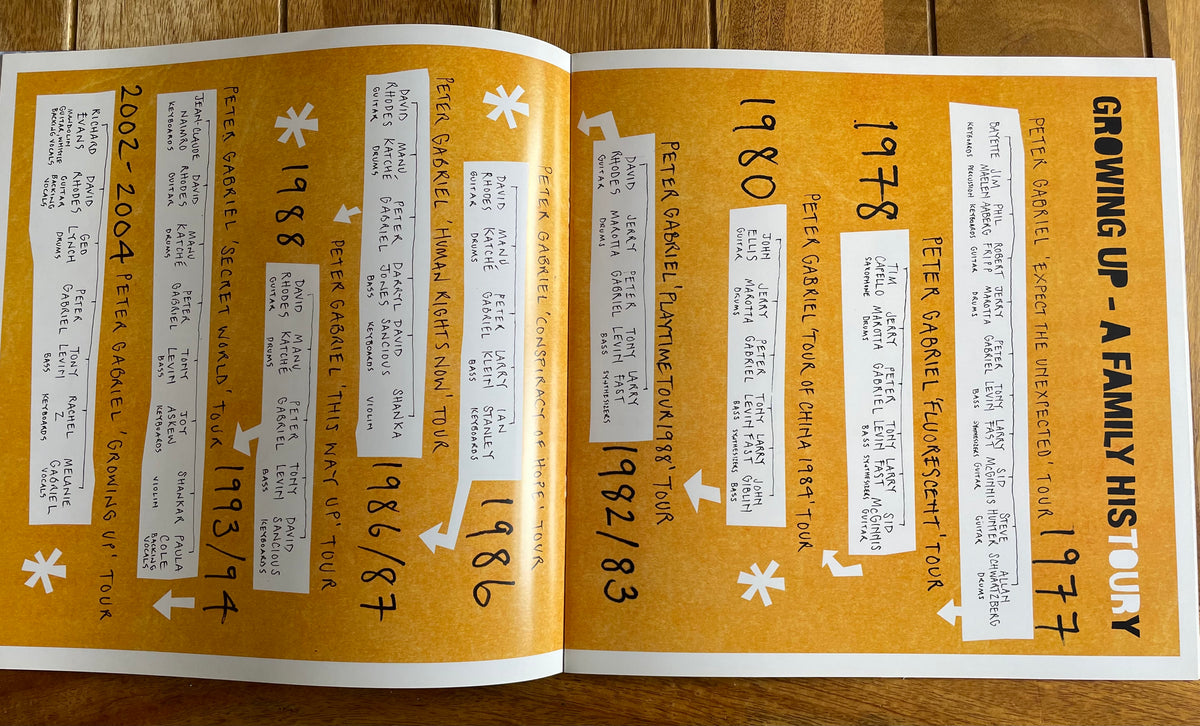 GROWING UP - A FAMILY HISTOURY
PETER GABRIEL 'EXPECT THE UNEXPECTED' TOUR 1977
BAYETTE JIM PHIL ROBERT JERRY PETER TONY LARRY SID STEVE ALLAN
MAELEN AABERG FRIPP MAROTTA GABRIEL LEVIN FAST McGINNIS HUNTER SCHWARTZBERG
KEYBOARDS PERCUSSION KEYBOARDS GUITAR DRUMS BASS SYNTHESIZERS GUITAR GUITAR DRUMS
PETER GABRIEL 'FLUORESCENT' TOUR
1978
TIM JERRY PETER TONY LARRY SID
CAPELLO MAROTTA GABRIEL LEVIN FAST McGINNIS
SAXOPHONE DRUMS BASS SYNTHESIZERS GUITAR
PETER GABRIEL 'TOUR OF CHINA 1984' TOUR
1980
JOHN JERRY PETER TONY LARRY JOHN
ELLIS MAROTTA GABRIEL LEVIN FAST GIBLIN
GUITAR DRUMS BASS SYNTHESIZERS BASS
PETER GABRIEL 'PLAYTIME TOUR 1988' TOUR
1982/83
DAVID JERRY PETER TONY LARRY
RHODES MAROTTA GABRIEL LEVIN FAST
GUITAR DRUMS BASS SYNTHESIZERS
PETER GABRIEL 'CONSPIRACY OF HOPE' TOUR
1986
DAVID MANU PETER LARRY IAN
RHODES KATCHÉ GABRIEL KLEIN STANLEY
GUITAR DRUMS BASS KEYBOARDS
PETER GABRIEL 'HUMAN RIGHTS NOW' TOUR
1986/87
DAVID MANU PETER DARRYL DAVID SHANKA
RHODES KATCHÉ GABRIEL JONES SANCIOUS
GUITAR DRUMS BASS KEYBOARDS VIOLIN
PETER GABRIEL 'THIS WAY UP' TOUR
1988
DAVID MANU PETER TONY DAVID
RHODES KATCHÉ GABRIEL LEVIN SANCIOUS
GUITAR DRUMS BASS KEYBOARDS
PETER GABRIEL 'SECRET WORLD' TOUR 1993/94
JEAN-CLAUDE DAVID MANU PETER TONY JOY SHANKAR PAULA
NAIMRO RHODES KATCHÉ GABRIEL LEVIN ASKEW COLE
KEYBOARDS GUITAR DRUMS BASS KEYBOARDS VIOLIN BACKING VOCALS
2002-2004 PETER GABRIEL 'GROWING UP' TOUR
RICHARD DAVID GED PETER TONY RACHEL MELANIE
EVANS RHODES LYNCH GABRIEL LEVIN Z GABRIEL
MANDOLIN GUITAR DRUMS BASS KEYBOARDS VOCALS
GUITAR, WHISTLE BACKING
BACKING VOCALS VOCALS